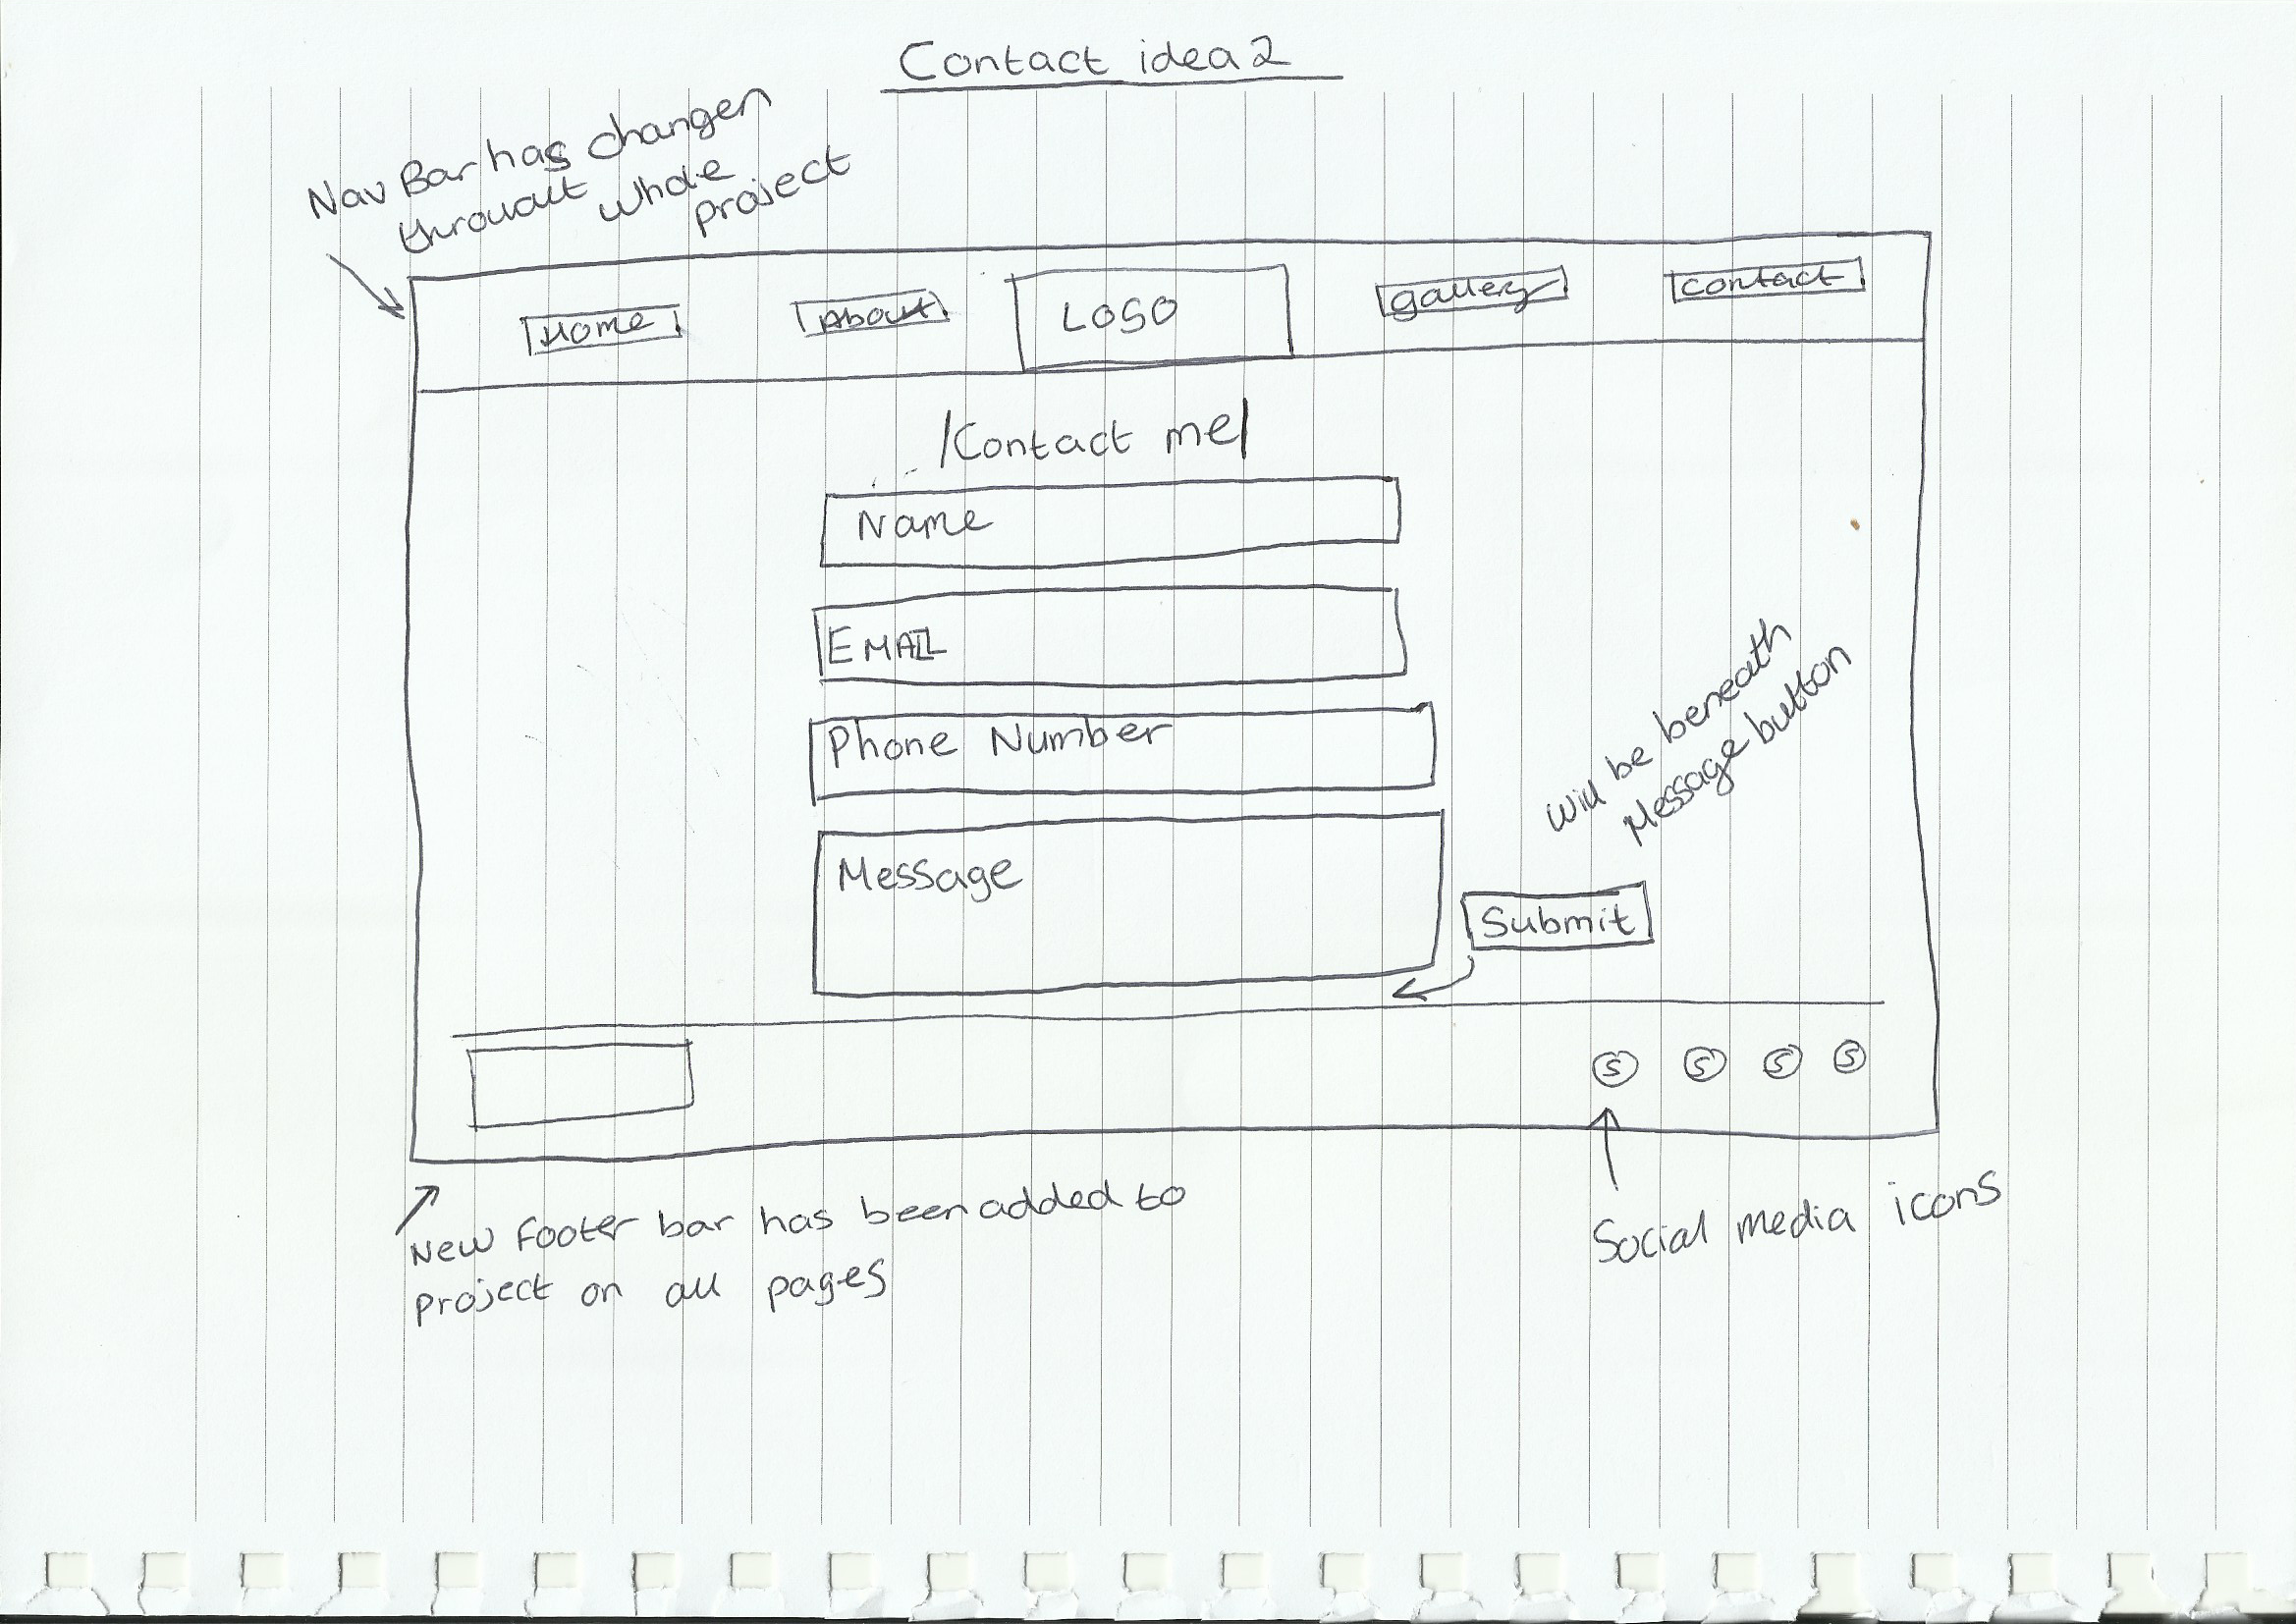 Contact idea 2
Nav Bar has changen
throuout whole
project
Home
About
LOGO
gallery
contact
/Contact me/
Name
EMAIL
Phone Number
Message
will be beneath
Message button
Submit
S S S S
New footer bar has been added to
project on all pages
Social media icons